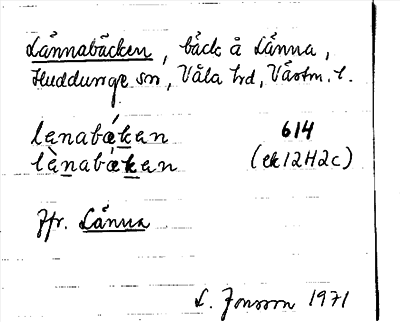 Lännabäcken, bäck å Länna,
Huddunge sn, Våla hd, Västm. l.
lenabǽkan 614
lènabækan (ek 12H2c)
Jfr. Länna
L. Jonsson 1971